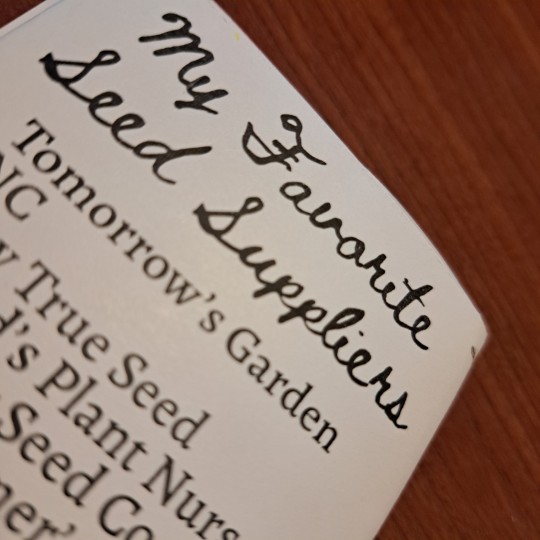 My Favorite
Seed Suppliers
Tomorrow's Garden
NC
True Seed
Plant
Seed